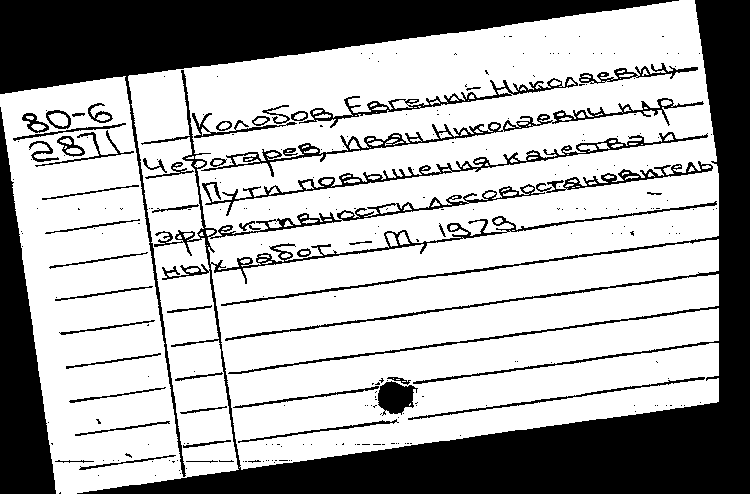 80-6
2871
Колобов, Евгений Николаевич,
Чеботарев, Иван Николаевич и др.
Пути повышения качества и
эффективности лесовостановитель-
ных работ. — М., 1979.